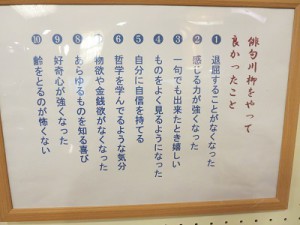 俳句川柳をやって
良かったこと
❶ 退屈することがなくなった
❷ 感じる力が強くなった
❸ 一句でも出来たとき嬉しい
❹ ものをよく見るようになった
❺ 自分に自信を持てる
❻ 哲学を学んでるような気分
❼ 物欲や金銭欲がなくなった
❽ あらゆるものを知る喜び
❾ 好奇心が強くなった
❿ 齢をとるのが怖くない